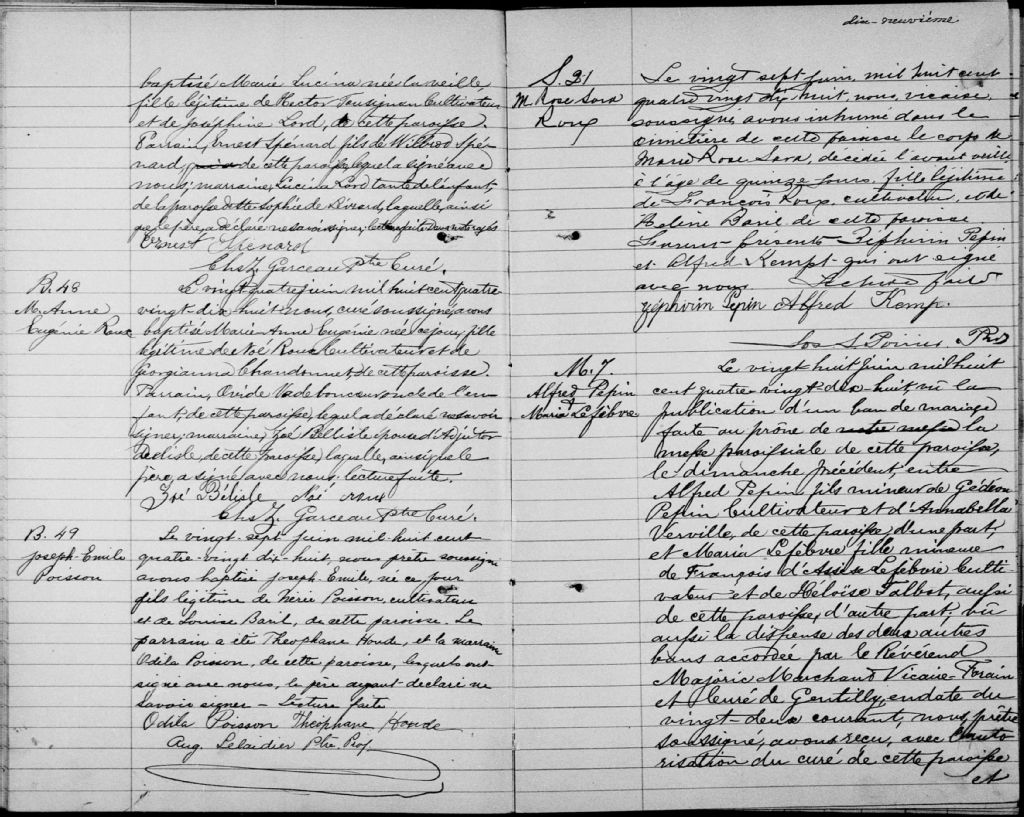 baptisé Marie Lucina née la veille,
fille légitime de Hector Cultivateur
et de Joséphine Lord, de cette paroisse.
Parrain, Ernest Spénard fils de Wilbrod Spé-
nard, de cette paroisse, lequel a signé avec
nous; marraine, Lucina Lord tante de l'enfant
de la paroisse de Ste Sophie de Lévrard, laquelle, ainsi
que le père, a déclaré ne savoir signer; lecture faite
Ernest Spénard
Chs Z. Garceau Ptre Curé.
B. 48
M. Anne
Eugénie Roux
Le vingt quatre juin mil huit cent quatre
vingt dix huit nous, curé soussigné, avons
baptisé Marie Anne Eugénie née ce jour, fille
légitime de Noé Roux Cultivateur et de
Georgianna Chandonnet, de cette paroisse.
Parrain, Ovide Vadeboncoeur oncle de l'en-
fant, de cette paroisse, lequel a déclaré ne savoir
signer, marraine, Zoé Bélisle épouse d'Adjutor
Délisle, de cette paroisse, laquelle, ainsi que le
père, a signé avec nous. lecture faite.
Zoé Bélisle Noé roux
Chs Z. Garceau Ptre Curé.
B. 49
Joseph-Emile
Poisson
Le vingt-sept juin mil-huit cent
quatre-vingt dix-huit, nous prêtre soussigné
avons baptisé Joseph-Emile, né ce jour
fils légitime de Poisson, cultivateur
et de Louise Baril, de cette paroisse. Le
parrain a été Théophane Houde, et la marraine
Odila Poisson, de cette paroisse, lesquels ont
signé avec nous, le père ayant déclaré ne
savoir signer – Lecture faite
Odila Poisson Théophane Houde
Aug. Ptre Prof.
dix-neuvième
S. 21
M. Rose Sara
Roux
Le vingt sept juin, mil huit cent
quatre vingt dix huit, nous, vicaire
soussigné avons inhumé dans le
cimetière de cette paroisse le corps de
Marie Rose Sara, décédée l'avant veille
à l'âge de quinze jours, fille légitime
de François Roux, cultivateur, et de
Baril de cette paroisse.
Furent présents Zéphirin Pepin
et Alfred Kempt qui ont signé
avec nous. Lecture faite
Zéphirin Pepin Alfred Kemp.
Jos Poirier Ptre
M. 7.
Alfred Pépin
&
Maria Lefebvre
Le vingt huit juin mil huit
cent quatre vingt dix huit vu la
publication d'un ban de mariage
faite au prône de la
messe paroissiale de cette paroisse,
le dimanche précédent entre
Alfred Pépin, fils mineur de Gédéon
Pépin Cultivateur et d'Annabella
Verville, de cette paroisse d'une part,
et Maria Lefebvre fille mineure
de François d'Assise Lefebvre Culti-
vateur et de Héloïse Talbot, aussi
de cette paroisse, d'autre part, vu
aussi la dispense des deux autres
bans accordée par le Révérend
Majoric Marchand Vicaire-Forain
et Curé de Gentilly, en date du
vingt-deux courant, nous, prêtre
soussigné, avons reçu, avec l'auto
risation du curé de cette paroisse
et